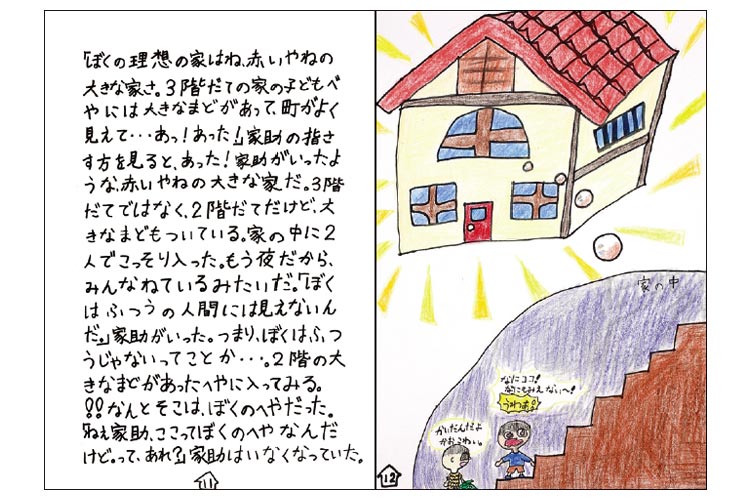 「ぼくの理想の家はね、赤いやねの
大きな家さ。3階だての家の子どもべ
やには大きなまどがあって、町がよく
見えて・・・あっ！あった！」家助の指さ
す方を見ると、あった！家助がいったよ
うな、赤いやねの大きな家だ。3階
だてではなく、2階だてだけど、大
きなまどもついている。家の中に2
人でこっそり入った。もう夜だから、
みんなねているみたいだ。「ぼく
はふつうの人間には見えないん
だ。」家助がいった。つまり、ぼくはふつ
うじゃないってことか・・・。2階の大
きなまどがあったへやに入ってみる。
!!なんとそこは、ぼくのへやだった。
「ねえ家助、ここってぼくのへやなんだ
けど。って、あれ？」家助はいなくなっていた。
11
家の中
なにココ！
なにもみえない〜！
うわあ。
かいだんだよ
かおこわい。
12